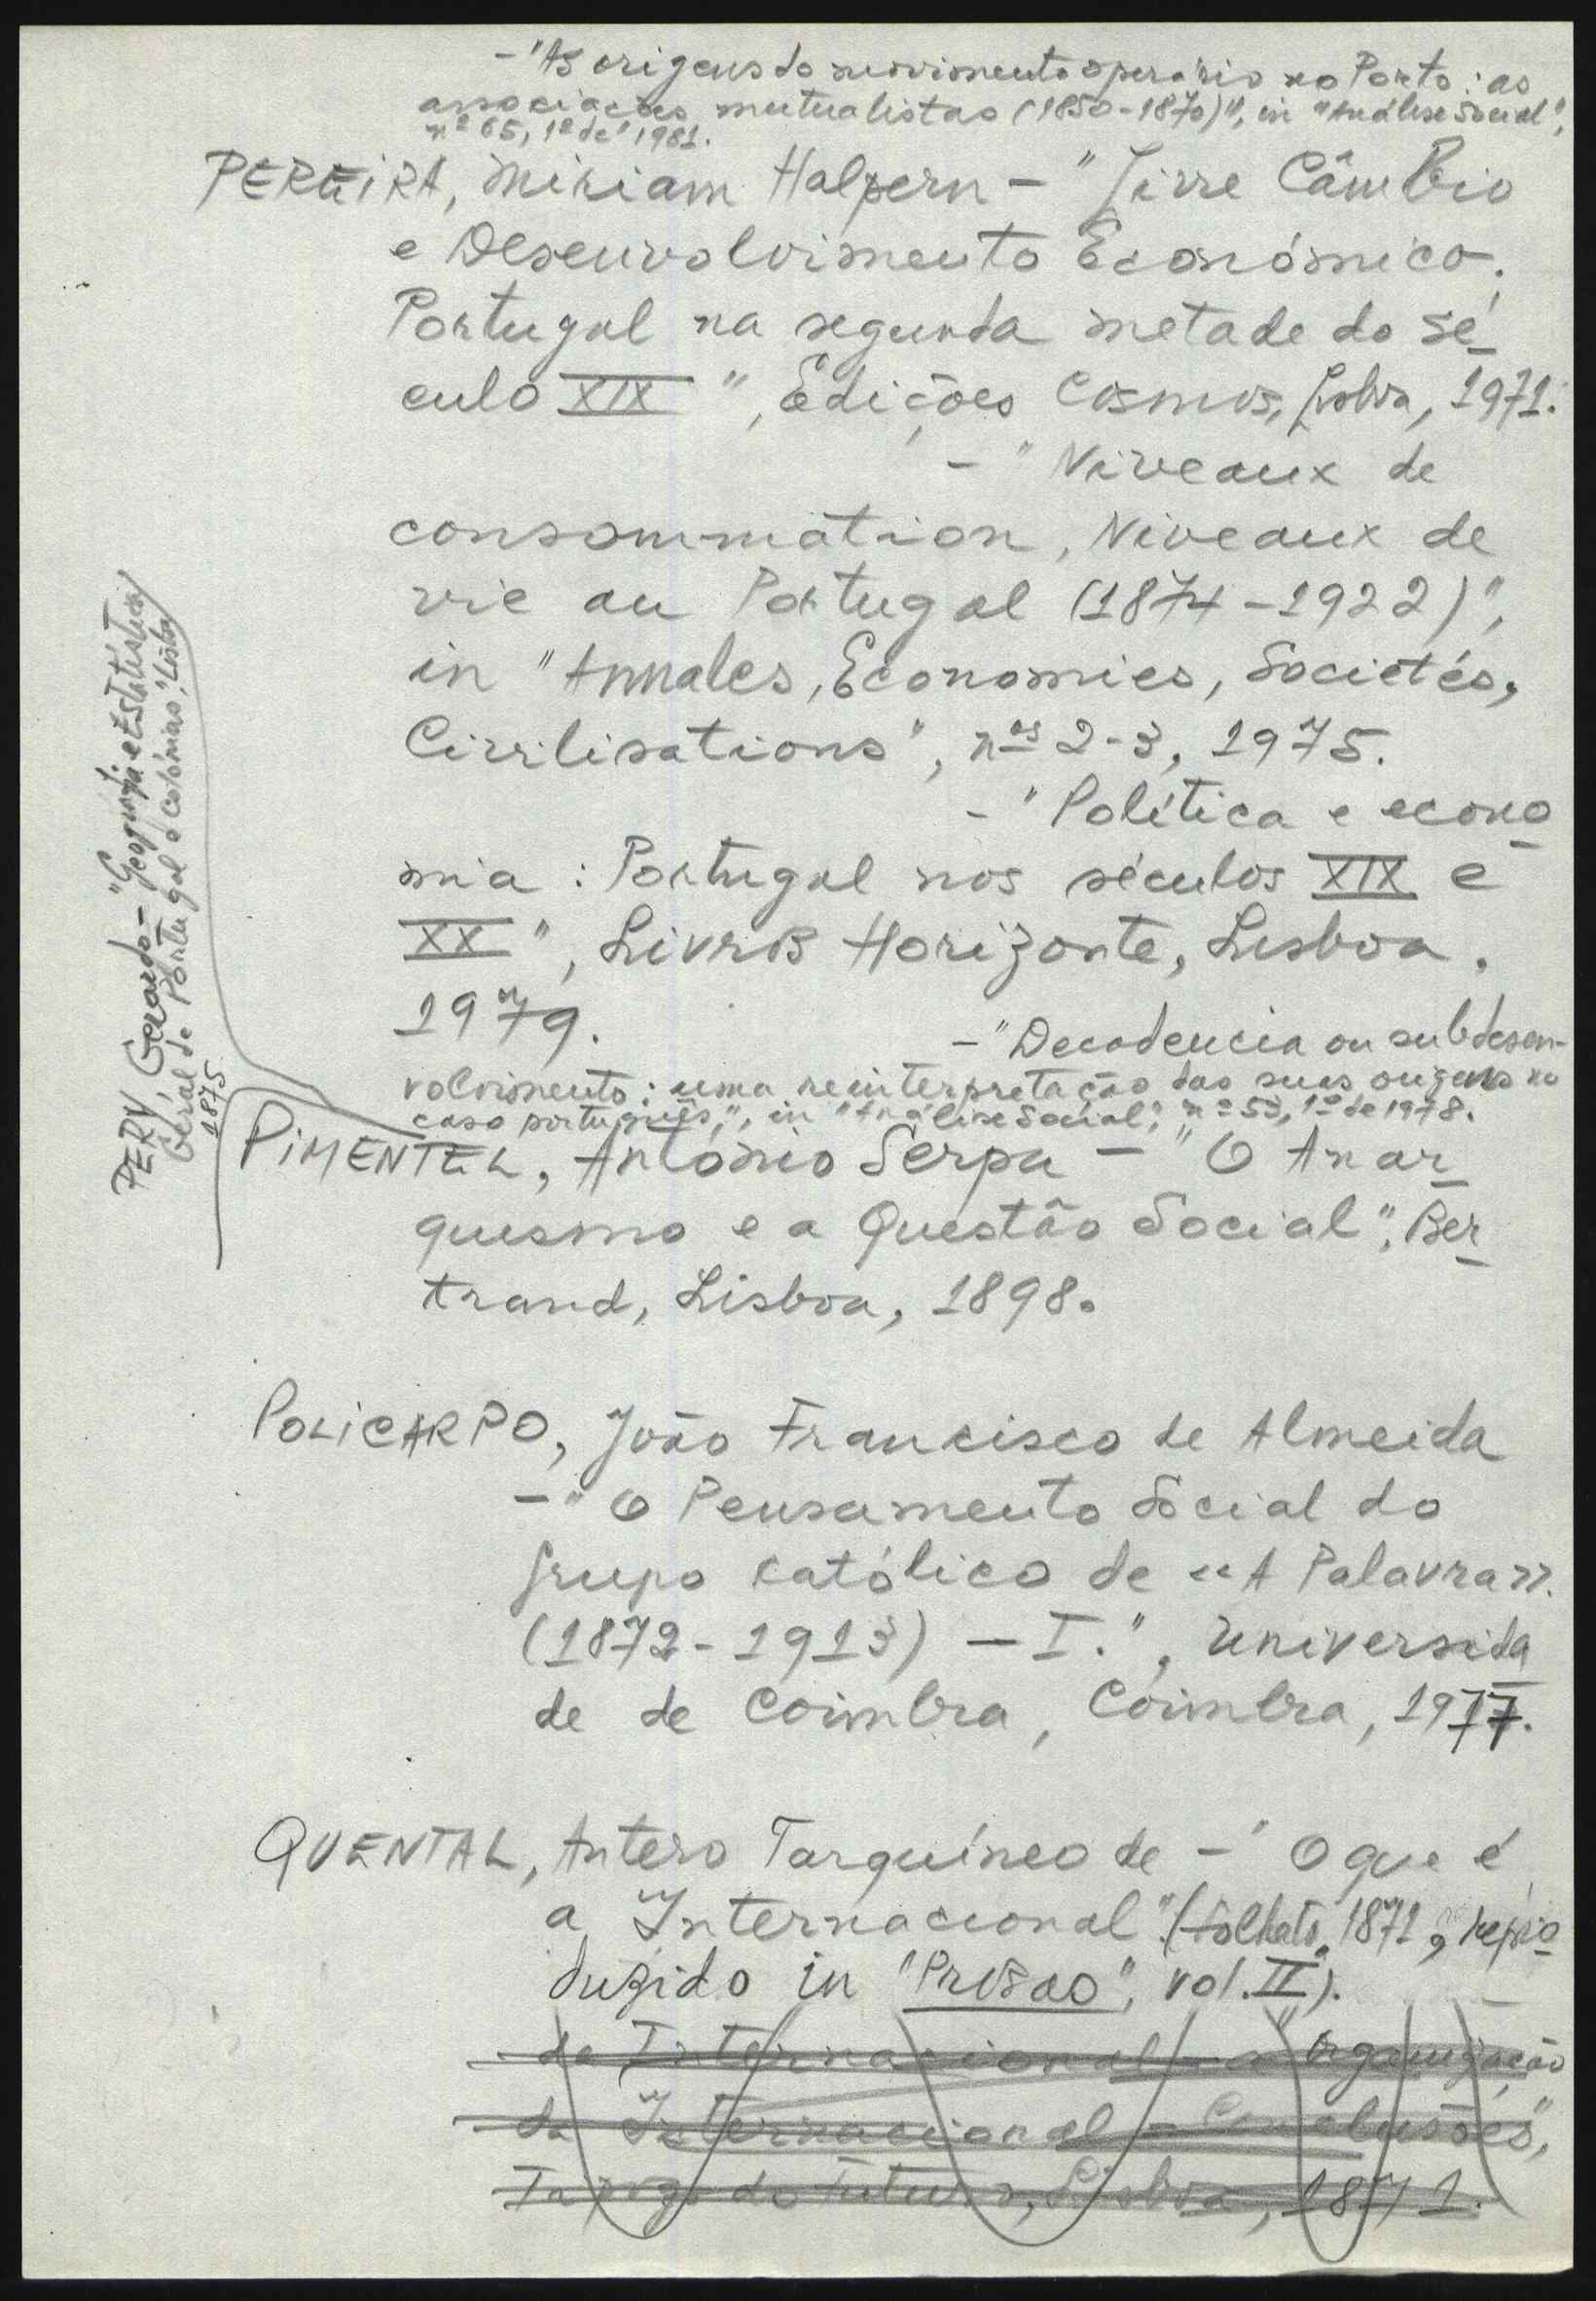 - "As origens do movimento operário no Porto: as
associações mutualistas (1850-1870)", in "Análise Social",
nº 65, 1º de 1981.
PEREIRA, Miriam Halpern - "Livre Câmbio
e Desenvolvimento Económico.
Portugal na segunda metade do sé
culo XIX", Edições Cosmos, Lisboa, 1971.
- "Niveaux de
consommation, Niveaux de
vie au Portugal (1874-1922)",
in "Annales, Economies, Societés,
Civilisations", nos 2-3, 1975.
- "Política e econo
mia: Portugal nos séculos XIX e
XX", Livros Horizonte, Lisboa,
1979.
- "Decadencia ou subdesen-
volvimento: uma reinterpretação das suas origens no
caso português", in "Análise Social", nº 53, 1º de 1978.
PERY, Gerardo - "Geografia e Estatistica
Geral de Portugal e Colónias", Lisboa,
1875
PIMENTEL, António Serpa - "O Anar
quismo e a Questão Social", Ber
trand, Lisboa, 1898.
POLICARPO, João Francisco de Almeida
- "O Pensamento Social do
grupo católico de «A Palavra».
(1872-1913) - I.", Universida
de de Coimbra, Coimbra, 1977.
QUENTAL, Antero Tarquíneo de - "O que é
a Internacional" (folheto, 1871, repro
duzido in "Prosas", vol. II).
da Internacional - a Organização
da Internacional - Conclusões",
do Futuro, Lisboa, 1871.